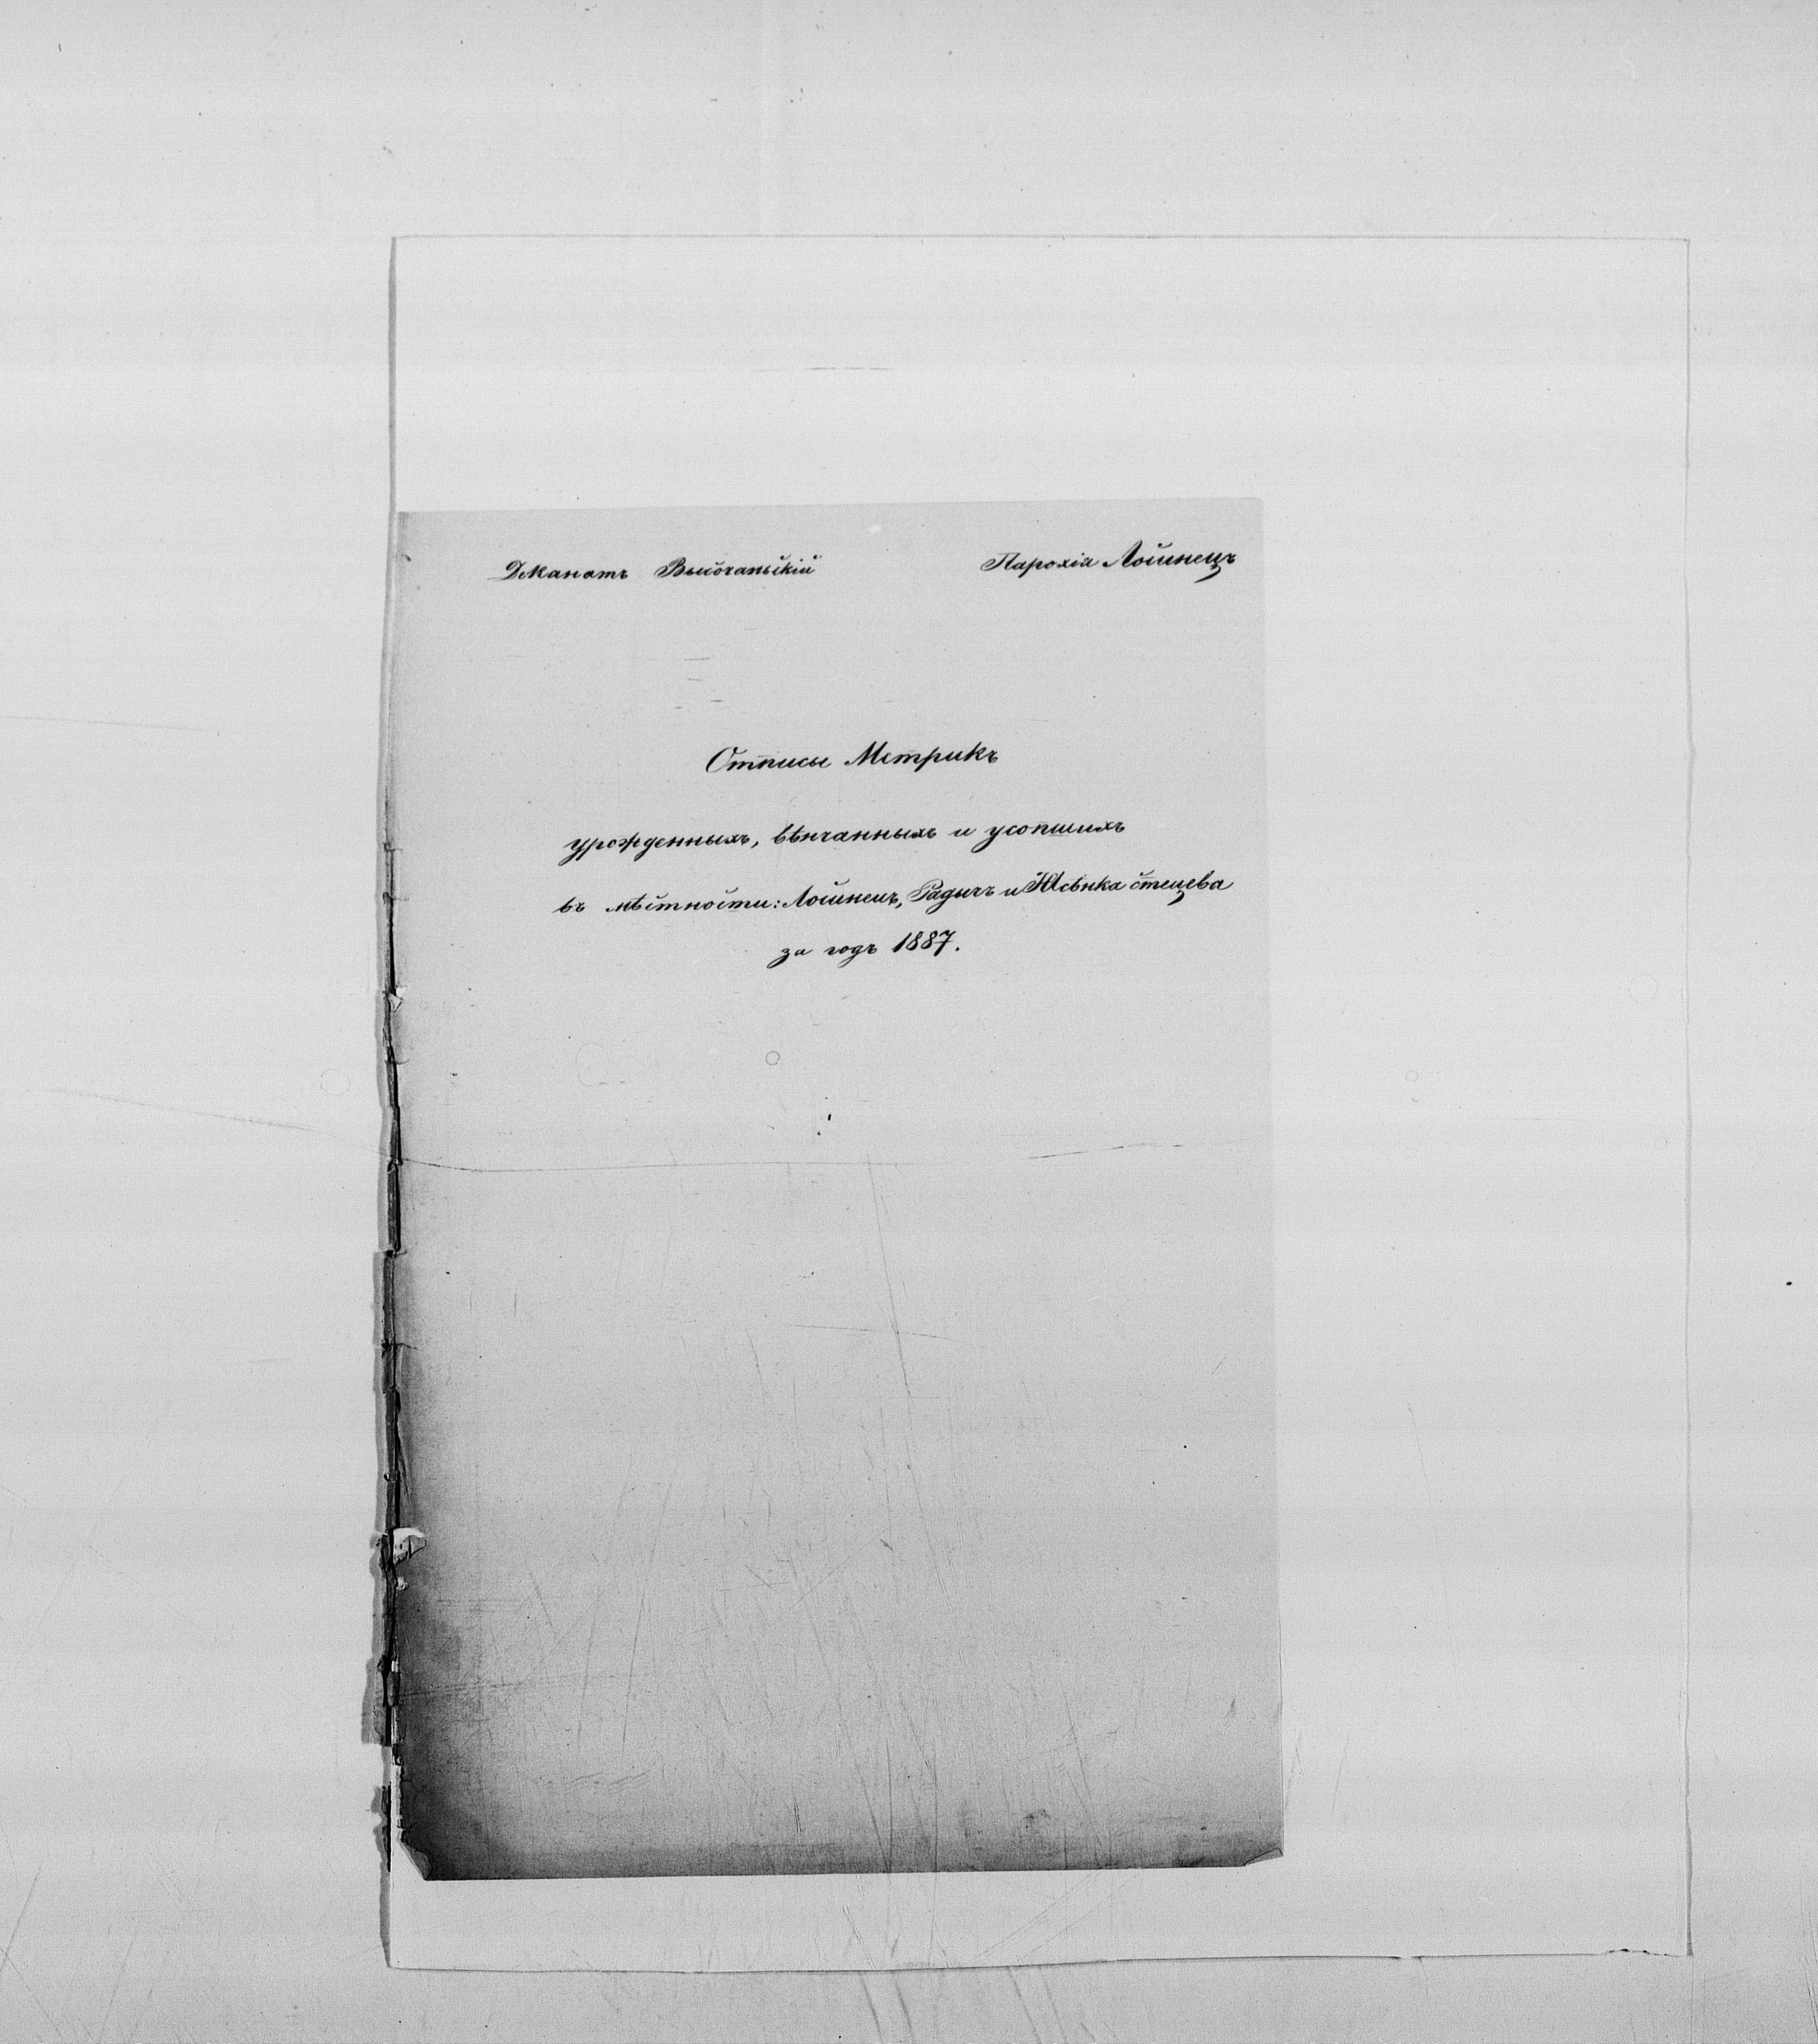 Деканатъ Высочаньскій Парохія Лосинецъ
Отписы Метрикъ
урожденныхъ, вѣнчанныхъ и усопшихъ
въ мѣстности: Лосинець, Радычъ и Ясѣнка стецева
за годъ 1887.